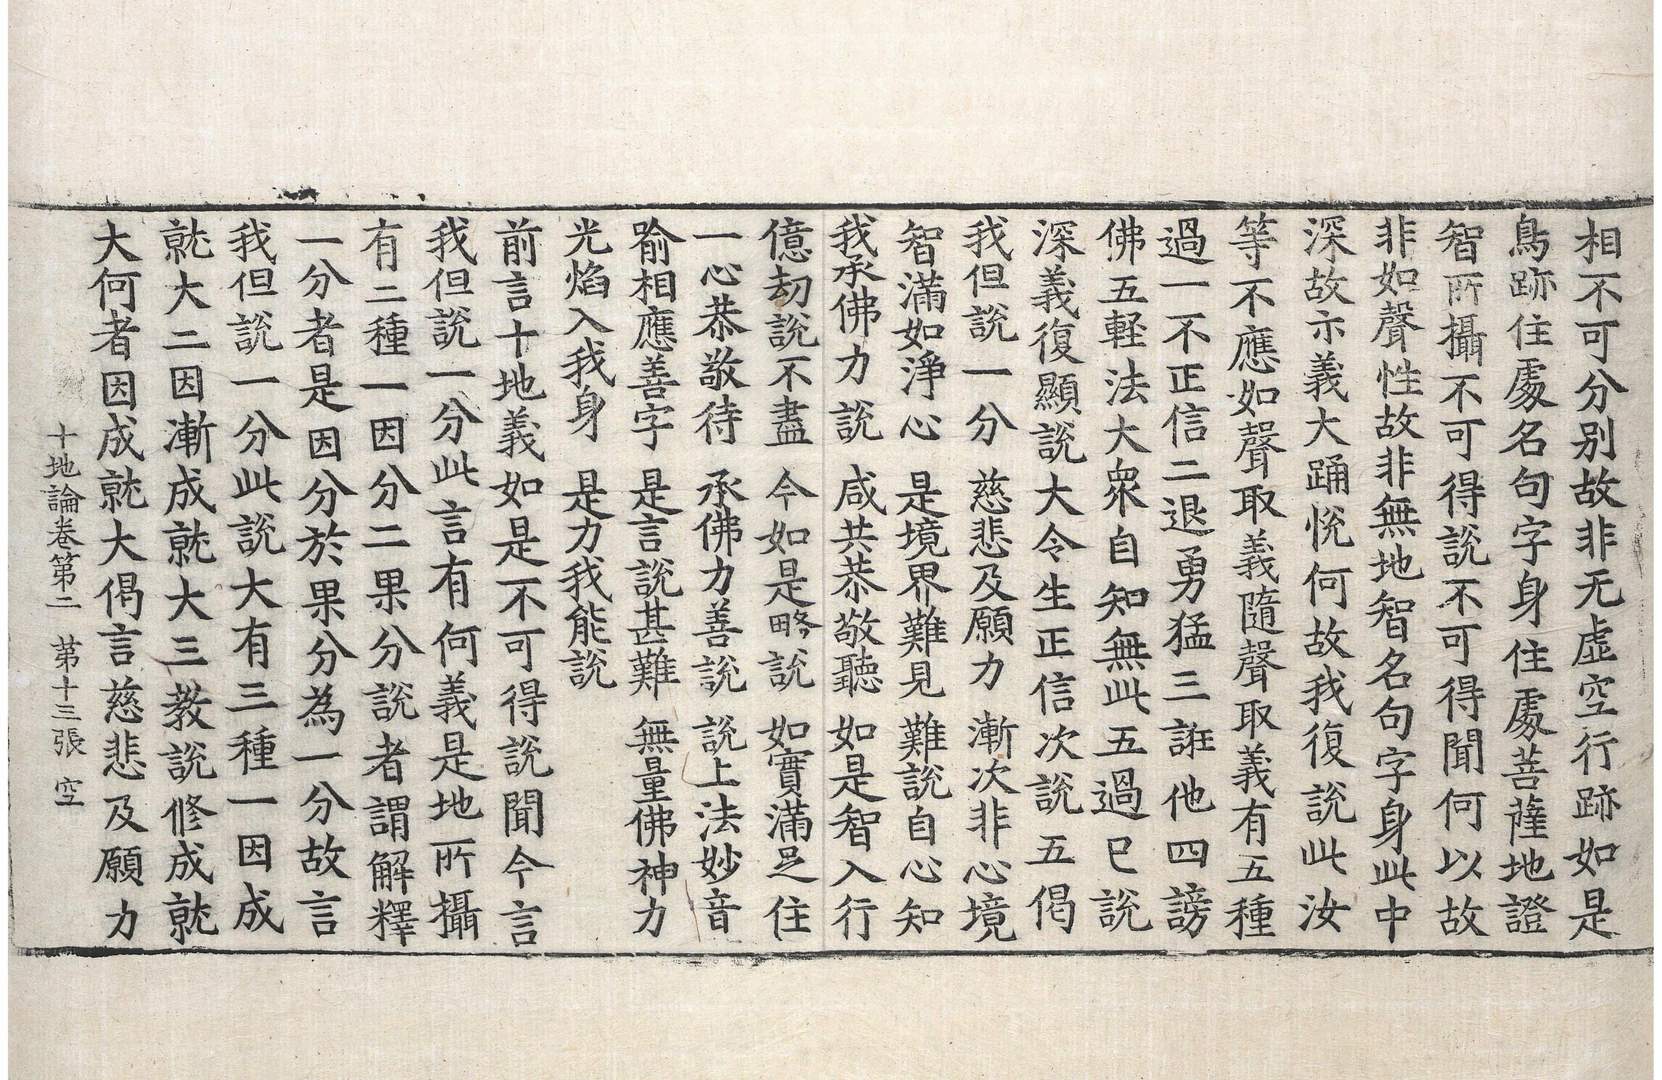 相不可分别故非无虚空行跡如是
鳥跡住處名句字身住處菩薩地證
智所攝不可得說不可得聞何以故
非如聲性故非無地智名句字身此中
深故示義大踊悅何故我復說此汝
等不應如聲取義隨聲取義有五種
過一不正信二退勇猛三誑他四謗
佛五軽法大衆自知無此五過已說
深義復顯說大令生正信次說五偈
我但說一分 慈悲及願力 漸次非心境
智滿如淨心 是境界難見 難說自心知
我承佛力說 咸共恭敬聽 如是智入行
億劫說不盡 今如是略說 如實滿足住
一心恭敬待 承佛力善說 說上法妙音
喻相應善字 是言說甚難 無量佛神力
光焰入我身 是力我能說
前言十地義如是不可得說聞今言
我但說一分此言有何義是地所攝
有二種一因分二果分說者謂解釋
一分者是因分於果分為一分故言
我但說一分此說大有三種一因成
就大二因漸成就大三教說修成就
大何者因成就大偈言慈悲及願力
十地論卷第二 第十三張 空